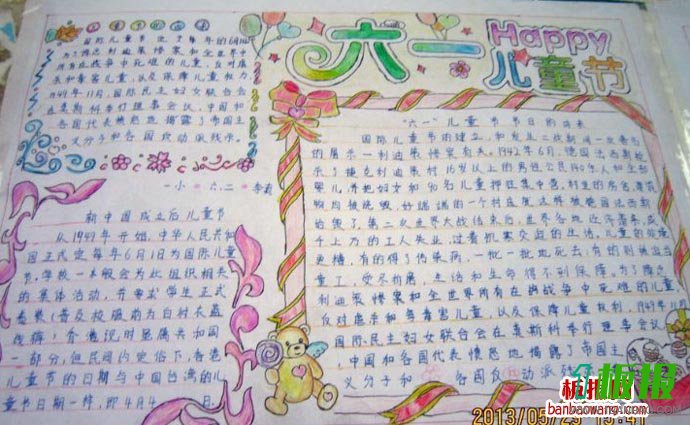 六一
Happy
儿童节
国际儿童节
为了悼念利迪策惨案和全世界
在战争中死难的儿童,反对虐
杀和毒害儿童,以及保障儿童权力,
1949年11月,国际民主妇女联合会
在莫斯科举行理事会议,中国和
各国代表愤怒地揭露了帝国主
义分子和各国反动派残杀、
一小 六、二
新中国成立后儿童节
从1949年开始,中华人民共和
国正式定每年6月1日为国际儿童
节,学校一般会为此组织相关
的集体活动,并要求学生正式
着装
香港现时虽属共和国
一部分,但民间
儿童节的日期与中国台湾的儿
童节日期一样,即4月4日
“六一”儿童节节日的由来
国际儿童节的建立,和发生二战期间一次著名
的屠杀一利迪策惨案有关。1942年6月,德国法西斯枪
杀了捷克利迪策村16岁以上的男性公民140余人和全部
婴儿,并把妇女和90名儿童押往集中营。村里的房舍、建筑
物均被烧毁,好端端的一个村庄就这样被德国法西斯
给毁了。第二次世界大战结束后,世界各地经济萧条,成
千上万的工人失业,过着饥寒交迫的生活。儿童的处境
更糟,有的得了传染病,一批一批地死去;有的则被迫当
童工,受尽折磨,生活和生命得不到保障。为了悼念
利迪策惨案和全世界所有在战争中死难的儿童,
反对虐杀和毒害儿童,以及保障儿童权利,1949年11月
国际民主妇女联合会在莫斯科举行理事会议,
中国和各国代表愤怒地揭露了帝国主
义分子和各国反动派残
2013/05/29 15:41
板报
banbaowang.com